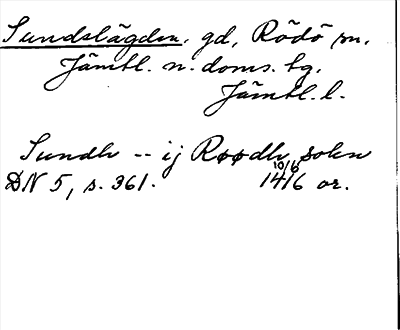 Sundslägden. gd, Rödö sn.
Jämtl. n. doms. tg.
Jämtl. l.
Sundh -- ij Røødh sokn
DN 5, s. 361. 10/6 1416 or.